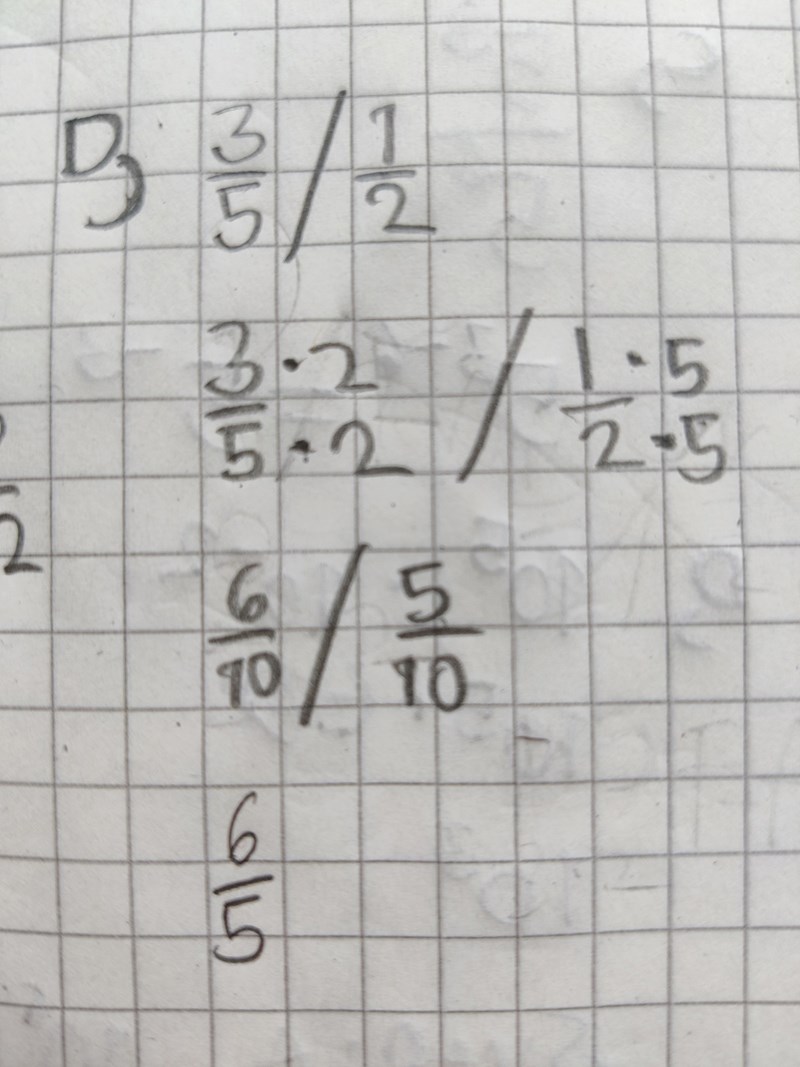 D) 3/5 / 1/2
3·2/5·2 / 1·5/2·5
2
6/10 / 5/10
6/5